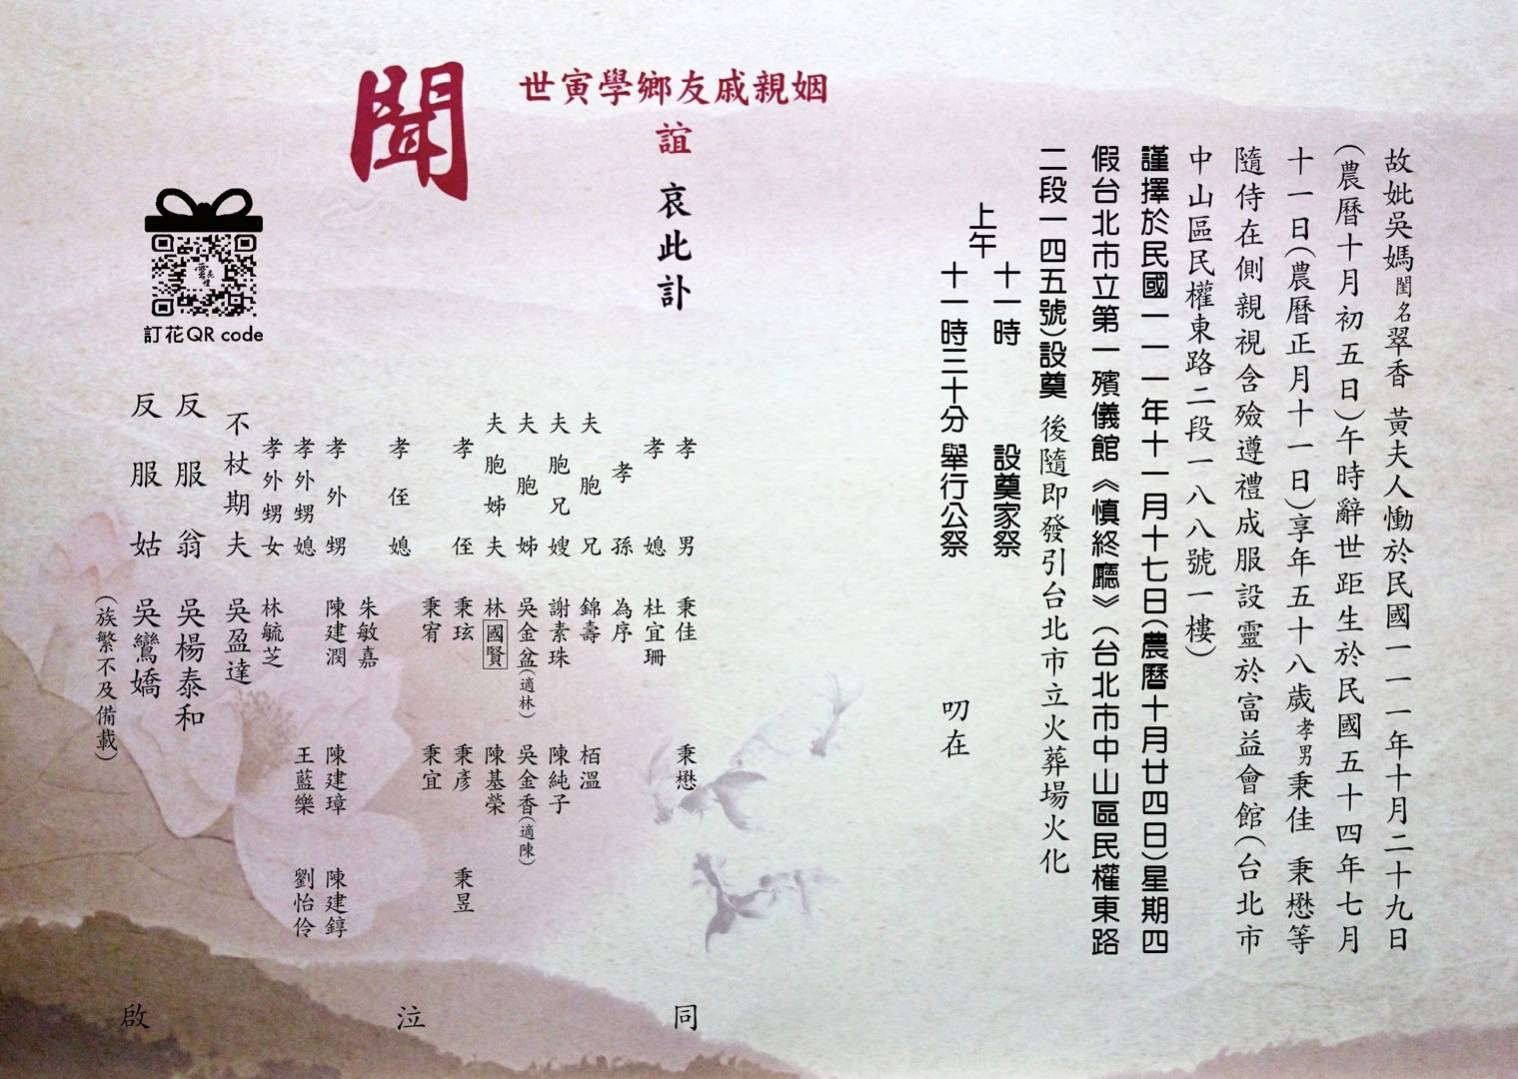 故妣吳媽閨名翠香 黃夫人慟於民國一一一年十月二十九日
(農曆十月初五日)午時辭世距生於民國五十四年七月
十一日(農曆正月十一日)享年五十八歲孝男秉佳 秉懋等
隨侍在側親視含殮遵禮成服設靈於富益會館(台北市
中山區民權東路二段一八八號一樓)
謹擇於民國一一一年十一月十七日(農曆十月廿四日)星期四
假台北市立第一殯儀館《慎終廳》(台北市中山區民權東路
二段一四五號)設奠 後隨即發引台北市立火葬場火化
上午
十一時 設奠家祭
十一時三十分 舉行公祭 叨在
姻親戚友鄉學寅世
誼 哀此訃
聞
孝男 秉佳 秉懋
孝媳 杜宜珊
孝孫 為序
夫胞兄 錦壽 栢溫
夫胞兄嫂 謝素珠 陳純子
夫胞姊 吳金盆(適林) 吳金香(適陳)
夫胞姊夫 林國賢 陳基榮
孝侄 秉玹 秉彥 秉昱
秉宥 秉宜
孝侄媳 朱敏嘉
孝外甥 陳建潤 陳建璋 陳建錞
孝外甥媳 王藍樂 劉怡伶
孝外甥女 林毓芝
不杖期夫 吳盈達
反服翁 吳楊泰和
反服姑 吳鸞嬌
(族繁不及備載)
同 泣 啟
訂花QR code